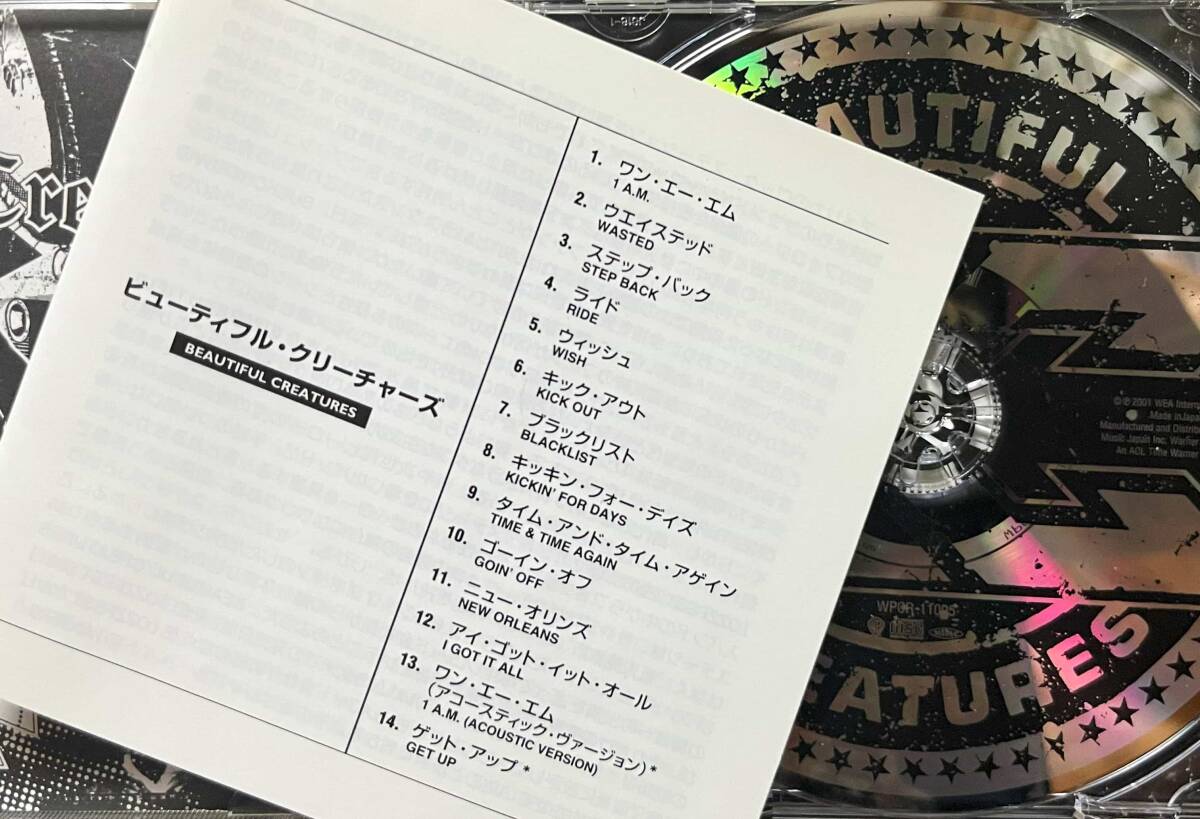 ビューティフル・クリーチャーズ
BEAUTIFUL CREATURES
1. ワン・エー・エム
1 A.M.
2. ウエイステッド
WASTED
3. ステップ・バック
STEP BACK
4. ライド
RIDE
5. ウィッシュ
WISH
6. キック・アウト
KICK OUT
7. ブラックリスト
BLACKLIST
8. キッキン・フォー・デイズ
KICKIN' FOR DAYS
9. タイム・アンド・タイム・アゲイン
TIME & TIME AGAIN
10. ゴーイン・オフ
GOIN' OFF
11. ニュー・オリンズ
NEW ORLEANS
12. アイ・ゴット・イット・オール
I GOT IT ALL
13. ワン・エー・エム
(アコースティック・ヴァージョン)*
1 A.M. (ACOUSTIC VERSION)
14. ゲット・アップ*
GET UP
Cre
AUTIFUL
©℗ 2001 WEA Inter
Made in Japa
Manufactured and Distrib
Music Japan Inc. Warner
An AOL Time Warner
WPCR-11095
EATURES